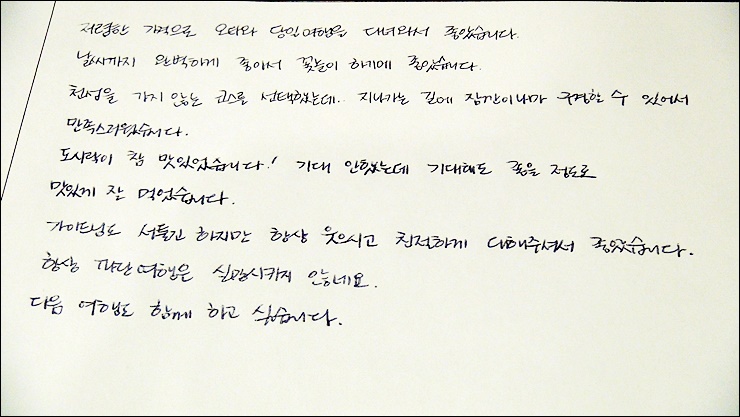 저렴한 가격으로 오타와 당일여행을 다녀와서 좋았습니다.
날씨까지 완벽하게 좋아서 꽃놀이 하기에 좋았습니다.
천섬을 가지 않는 코스로 선택했는데.. 지나가는 길에 잠깐이나마 구경할 수 있어서
만족스러웠습니다.
도시락이 참 맛있었습니다! 기대 안했는데 기대해도 좋을 정도로
맛있게 잘 먹었습니다.
가이드님도 서툴긴 하지만 항상 웃으시고 친절하게 대해주셔서 좋았습니다.
항상 파란여행은 실망시키지 않네요.
다음 여행도 함께 하고 싶습니다.